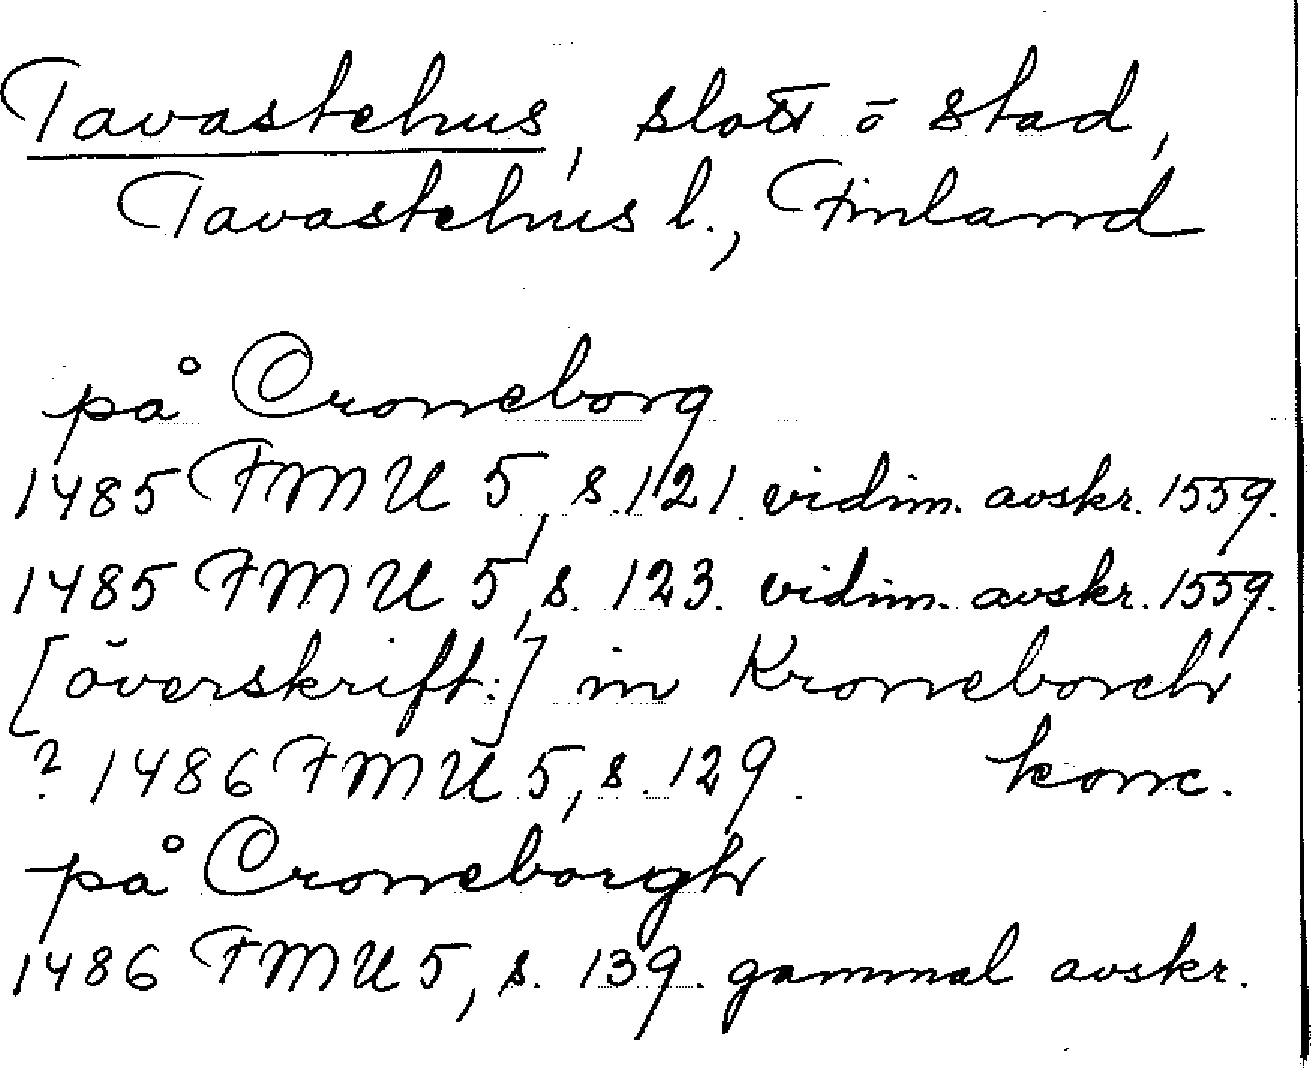 Tavastehus, slott o stad,
Tavastehus l., Finland
på Croneborg
1485 FMU 5, s. 121. vidim. avskr. 1559.
1485 FMU 5, s. 123. vidim. avskr. 1559.
[överskrift:] in Kroneborch
? 1486 FMU 5, s. 129. konc.
på Croneborgh
1486 FMU 5, s. 139. gammal avskr.